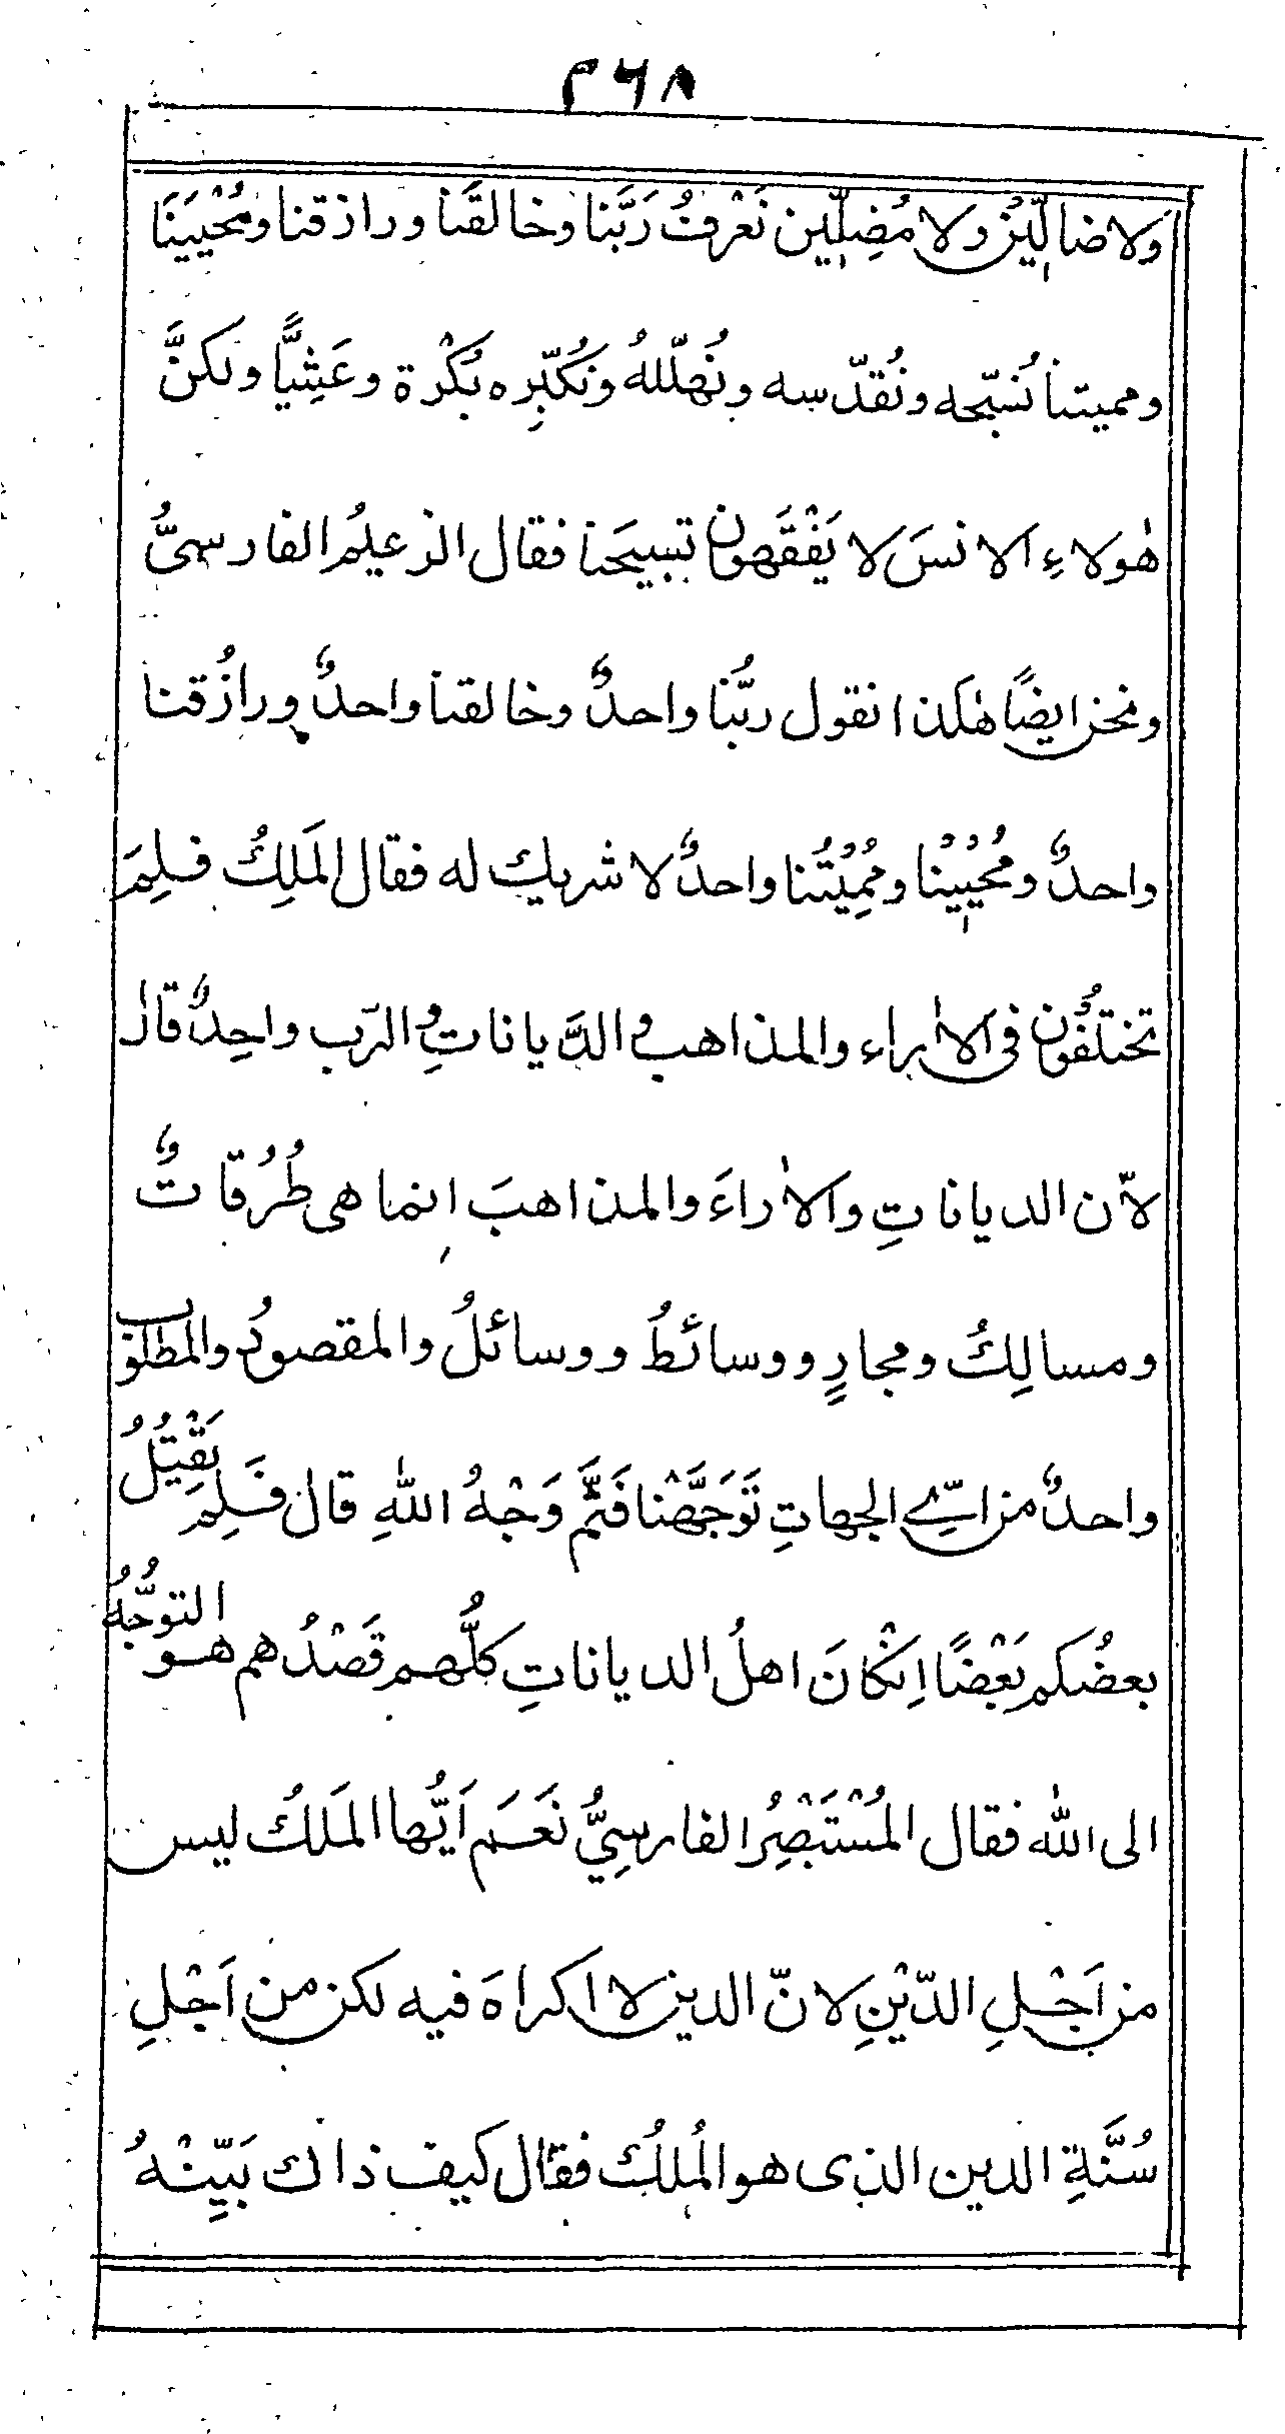 ٣٦٨
ولا ضالّين ولا مُضِلّين نَعْرِفُ رَبَّنا وخالقَنا ورازقنا ومُحْيِيَنَا
ومميتنا نُسَبّحه ونُقدّسه ونُهلّلهُ ونُكَبّرِه بُكْرة وعَشِيًّا ولكنَّ
هٰولاءِ الانسَ لا يَفْقَهون تسبيحَنا فقال الزعيمُ الفارسيُّ
ونحن ايضًا هٰكذا نقول ربُّنا واحدٌ وخالقنا واحدٌ ورازُقنا
واحدٌ ومُحْيِيْنُا ومُمِيْتُنا واحدٌ لا شريك له فقال المَلِكُ فلِمَ
تختلفُون فى الاٰراء والمذاهب والدَّياناتِ والرّب واحِدٌ قال
لاّن الدياناتِ والاٰراءَ والمذاهبَ انما هى طُرُقاتٌ
ومسالِكُ ومجارٍ ووسائطُ ووسائلُ والمقصودُ والمطلوب
واحدٌ من اىّ الجهاتِ تَوَجَّهْنا فَثَّم وَجْهُ اللهِ قال فَلِم يَقْتِلُ
بعضُكم بَعْضًا اِنْ كانَ اهلُ الدياناتِ كلُّهم قَصْدُهم هو التوجُّهُ
الى الله فقال المُسْتَبْصِرُ الفارسِيُّ نَعَم اَيُّها المَلكُ ليس
من اَجْلِ الدّيْنِ لانّ الدين لا اكراهَ فيه لكن من اَجْلِ
سُنَّةِ الدين الذى هو المُلكُ فقال كيف ذاك بَيِّنْهُ